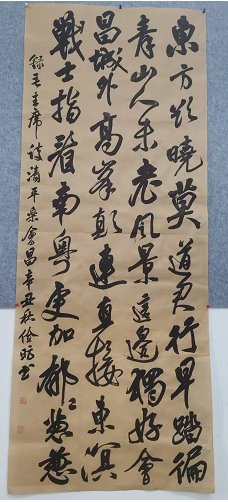 東方欲曉莫道君行早踏徧
青山人未老風景這邊獨好會
昌城外高峯顛連直接東溟
戰士指看南粵更加郁々葱葱
錄毛主席詞清平樂會昌辛丑秋書